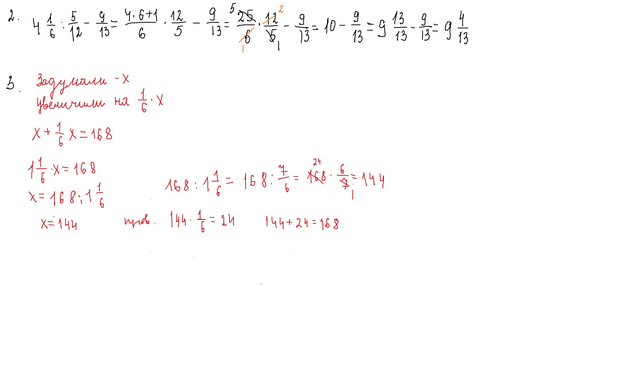 2. 4 1/6 : 5/12 - 9/13 = (4·6+1)/6 · 12/5 - 9/13 = 25/6 · 12/5 - 9/13 = 10 - 9/13 = 9 13/13 - 9/13 = 9 4/13
3. Задумали - x
увеличили на 1/6 · x
x + 1/6 x = 168
1 1/6 · x = 168
x = 168 : 1 1/6
168 : 1 1/6 = 168 : 7/6 = 168 · 6/7 = 144
x = 144 пров. 144 · 1/6 = 24 144 + 24 = 168